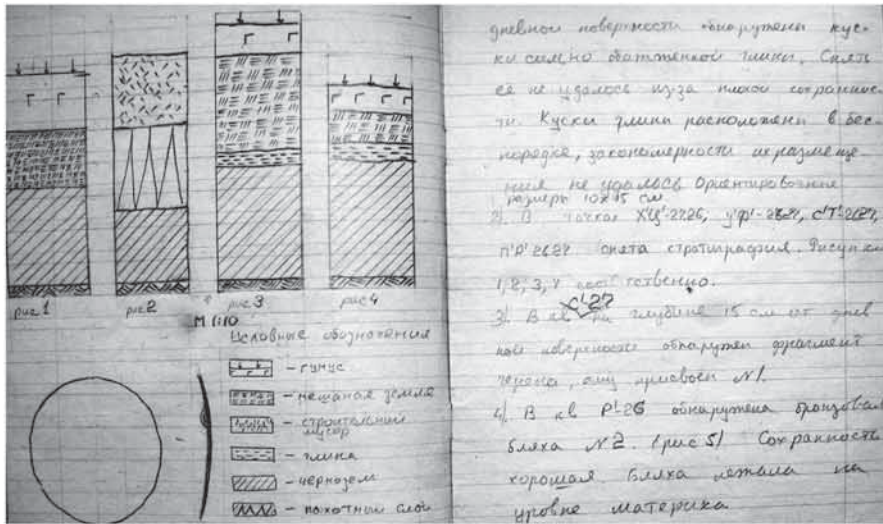 рис 1
рис 2
рис 3
рис 4
М 1:10
Условные обозначения
- гумус
- мешаная земля
- строительный
мусор
- глина
- чернозем
- пахотный слой
дневной поверхности обнаружены кус-
ки сильно обожженной глины. Снять
её не удалось из-за плохой сохраннос-
ти. Куски глины расположены в бес-
порядке, закономерности их размеще-
ния не удалось Ориентировочные
размеры 10х15 см.
2). В точках Х'Ц'-2726, У'Ф'-2627, С'Т'-2627,
П'Р' 2627 снята стратиграфия. Рисунки
1, 2, 3, 4
3). В кв Х'27 на глубине 15 см от днев
ной поверхности обнаружен фрагмент
черепа, ему присвоен №1.
4). В кв Р'-26 обнаружена бронзовая
бляха №2. (рис 5) Сохранность
хорошая. Бляха лежала на
уровне материка